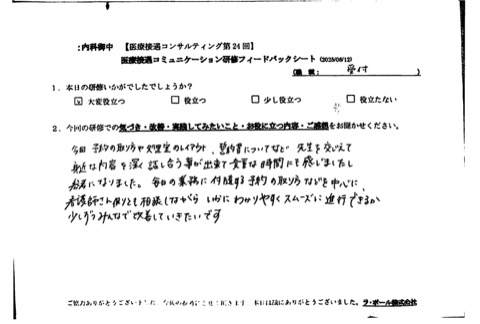 :内科御中 【医療接遇コンサルティング第24回】
医療接遇コミュニケーション研修フィードバックシート (2025/08/12)
(職種: 受付 )
1. 本日の研修いかがでしたでしょうか?
☑ 大変役立つ □ 役立つ □ 少し役立つ □ 役立たない
2. 今回の研修での気づき・改善・実践してみたいこと・お役に立つ内容・ご感想をお聞かせください。
今回 予約の取り方や処置室のレイアウト、契約書についてなど 先生を交えて
身近な内容を深く話し合う事が出来て 貴重な時間にも感じましたし
参考になりました。毎日の業務に付随する予約の取り方などを中心に、
看護師さん側とも相談しながら いかに わかりやすく スムーズに進行できるか
少しずつみんなで改善していきたいです
ご協力ありがとうございました。今後の参考にさせて頂きます。本日は誠にありがとうございました。ラ・ポール株式会社